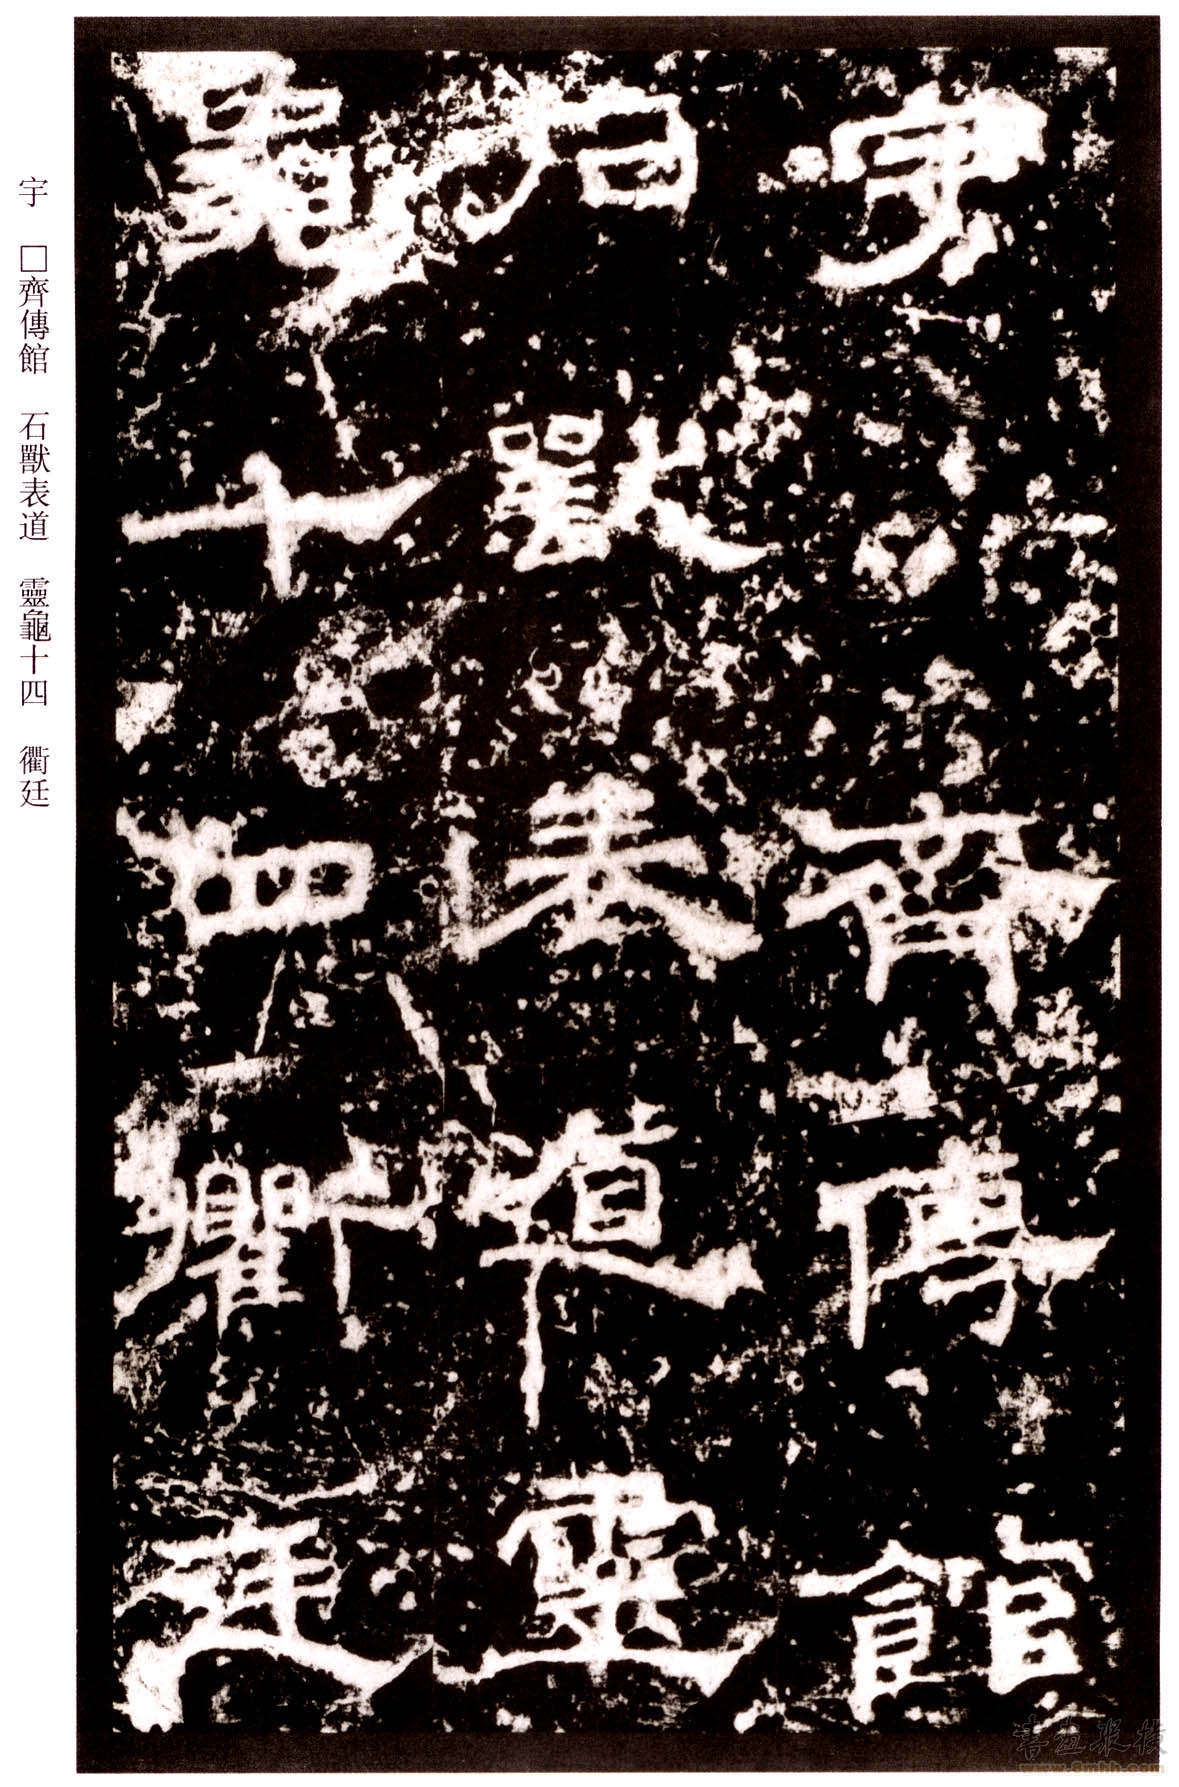 宇 □齊傳館 石獸表道 靈龜十四 衢廷
宇齊傳館
石獸表道靈
龜十四衢廷
www.8mhh.com